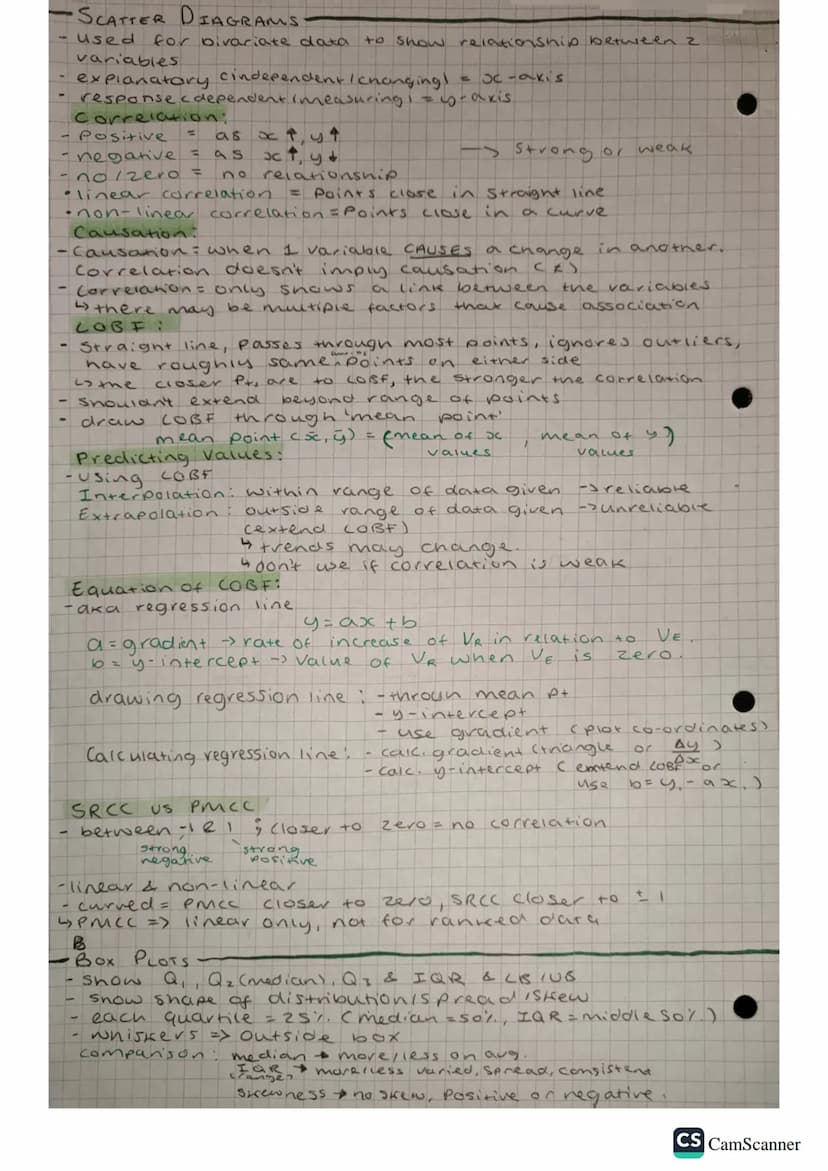 - SCATTER DIAGRAMS
- used for bivariate data to show relationship between 2
variables
- explanatory (independent/changing) = x-axis
- response (dependent/measuring) = y-axis
Correlation:
- Positive = as x ↑, y ↑
- negative = as x ↑, y ↓ → strong or weak
- no/zero = no relationship
• linear correlation = Points close in straight line
• non-linear correlation = Points close in a curve
Causation:
- Causation = when 1 variable CAUSES a change in another.
Correlation doesn't imply causation (≠)
- Correlation = only shows a link between the variables
↳ there may be multiple factors that cause association
LOBF:
- Straight line, passes through most points, ignores outliers,
have roughly same points on either side
↳ the closer pts are to LOBF, the stronger the correlation
- shouldn't extend beyond range of points
- draw LOBF through 'mean point'
mean point (x̄, ȳ) = (mean of x values, mean of y values)
Predicting Values:
- Using LOBF
Interpolation: within range of data given → reliable
Extrapolation: outside range of data given → unreliable
(extend LOBF)
↳ trends may change.
↳ don't use if correlation is weak
Equation of LOBF:
- aka regression line
y = ax + b
a = gradient → rate of increase of VR in relation to VE.
b = y-intercept → value of VR when VE is zero.
drawing regression line: - throun mean pt
- y-intercept
- use gradient (plot co-ordinates)
Calculating regression line: - calc. gradient (triangle or Δy/Δx)
- calc. y-intercept (extend LOBF or
use b = y₁ - ax₁)
SRCC vs PMCC
- between -1 & 1 ; closer to zero = no correlation
strong negative strong positive
- linear & non-linear
- curved = PMCC closer to zero, SRCC closer to ± 1
↳ PMCC => linear only, not for ranked data
B
- BOX PLOTS
- show Q₁, Q₂ (median), Q₃ & IQR & LB/UB
- show shape of distribution/spread/skew
- each quartile = 25%. (median = 50%, IQR = middle 50%.)
- whiskers => outside box
comparison: median → more/less on avg.
IQR (range) → more/less varied, spread, consistent
skewness → no skew, positive or negative.
CS CamScanner